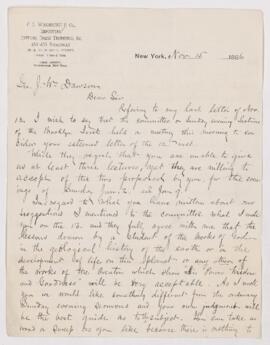 New York, Nov 15 1886
Sir J. Wm Dawson
Dear Sir
Refering to my last letter of Nov.
12. I wish to say that the committee on Sunday evening lectures
of the Brooklyn held a meeting this morning to con-
sider your esteemed letter of the 12th inst.
While they regret that you are unable to give
us at least three lectures, yet they are willing to
accept of the two proposed by you for the eve-
nings of Sunday
In regard to what you have written about our
suggestions I mentioned to the committee what I wrote
you on the 12 and they fully agree with me that the
lessons drawn by a student of the works of God
in the geological history of the earth or in the
development of life on this planet or any other of
the works of the Creator which show His Power Wisdom
and Goodness will be very acceptable. As I wrote
you we would like something different from the ordinary
Sunday evening sermons and your own judgement will
be the best guide as to subject. You can take as
broad a sweep as you like because there is nothing to